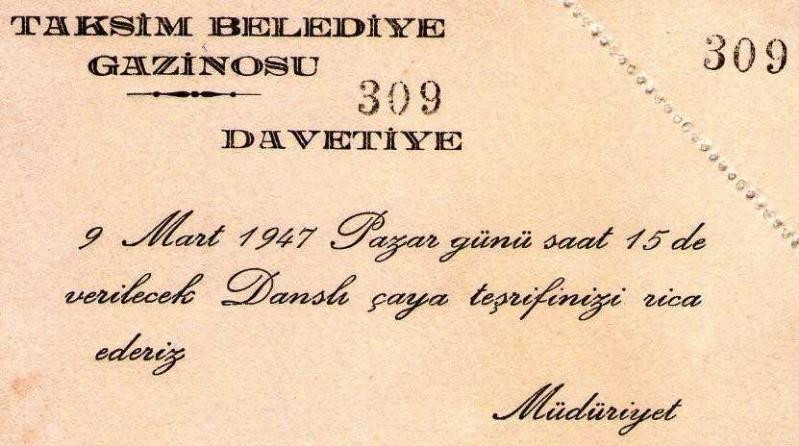 TAKSİM BELEDİYE
GAZİNOSU
309
309
DAVETİYE
9 Mart 1947 Pazar günü saat 15 de
verilecek Danslı çaya teşrifinizi rica
ederiz
Müdüriyet